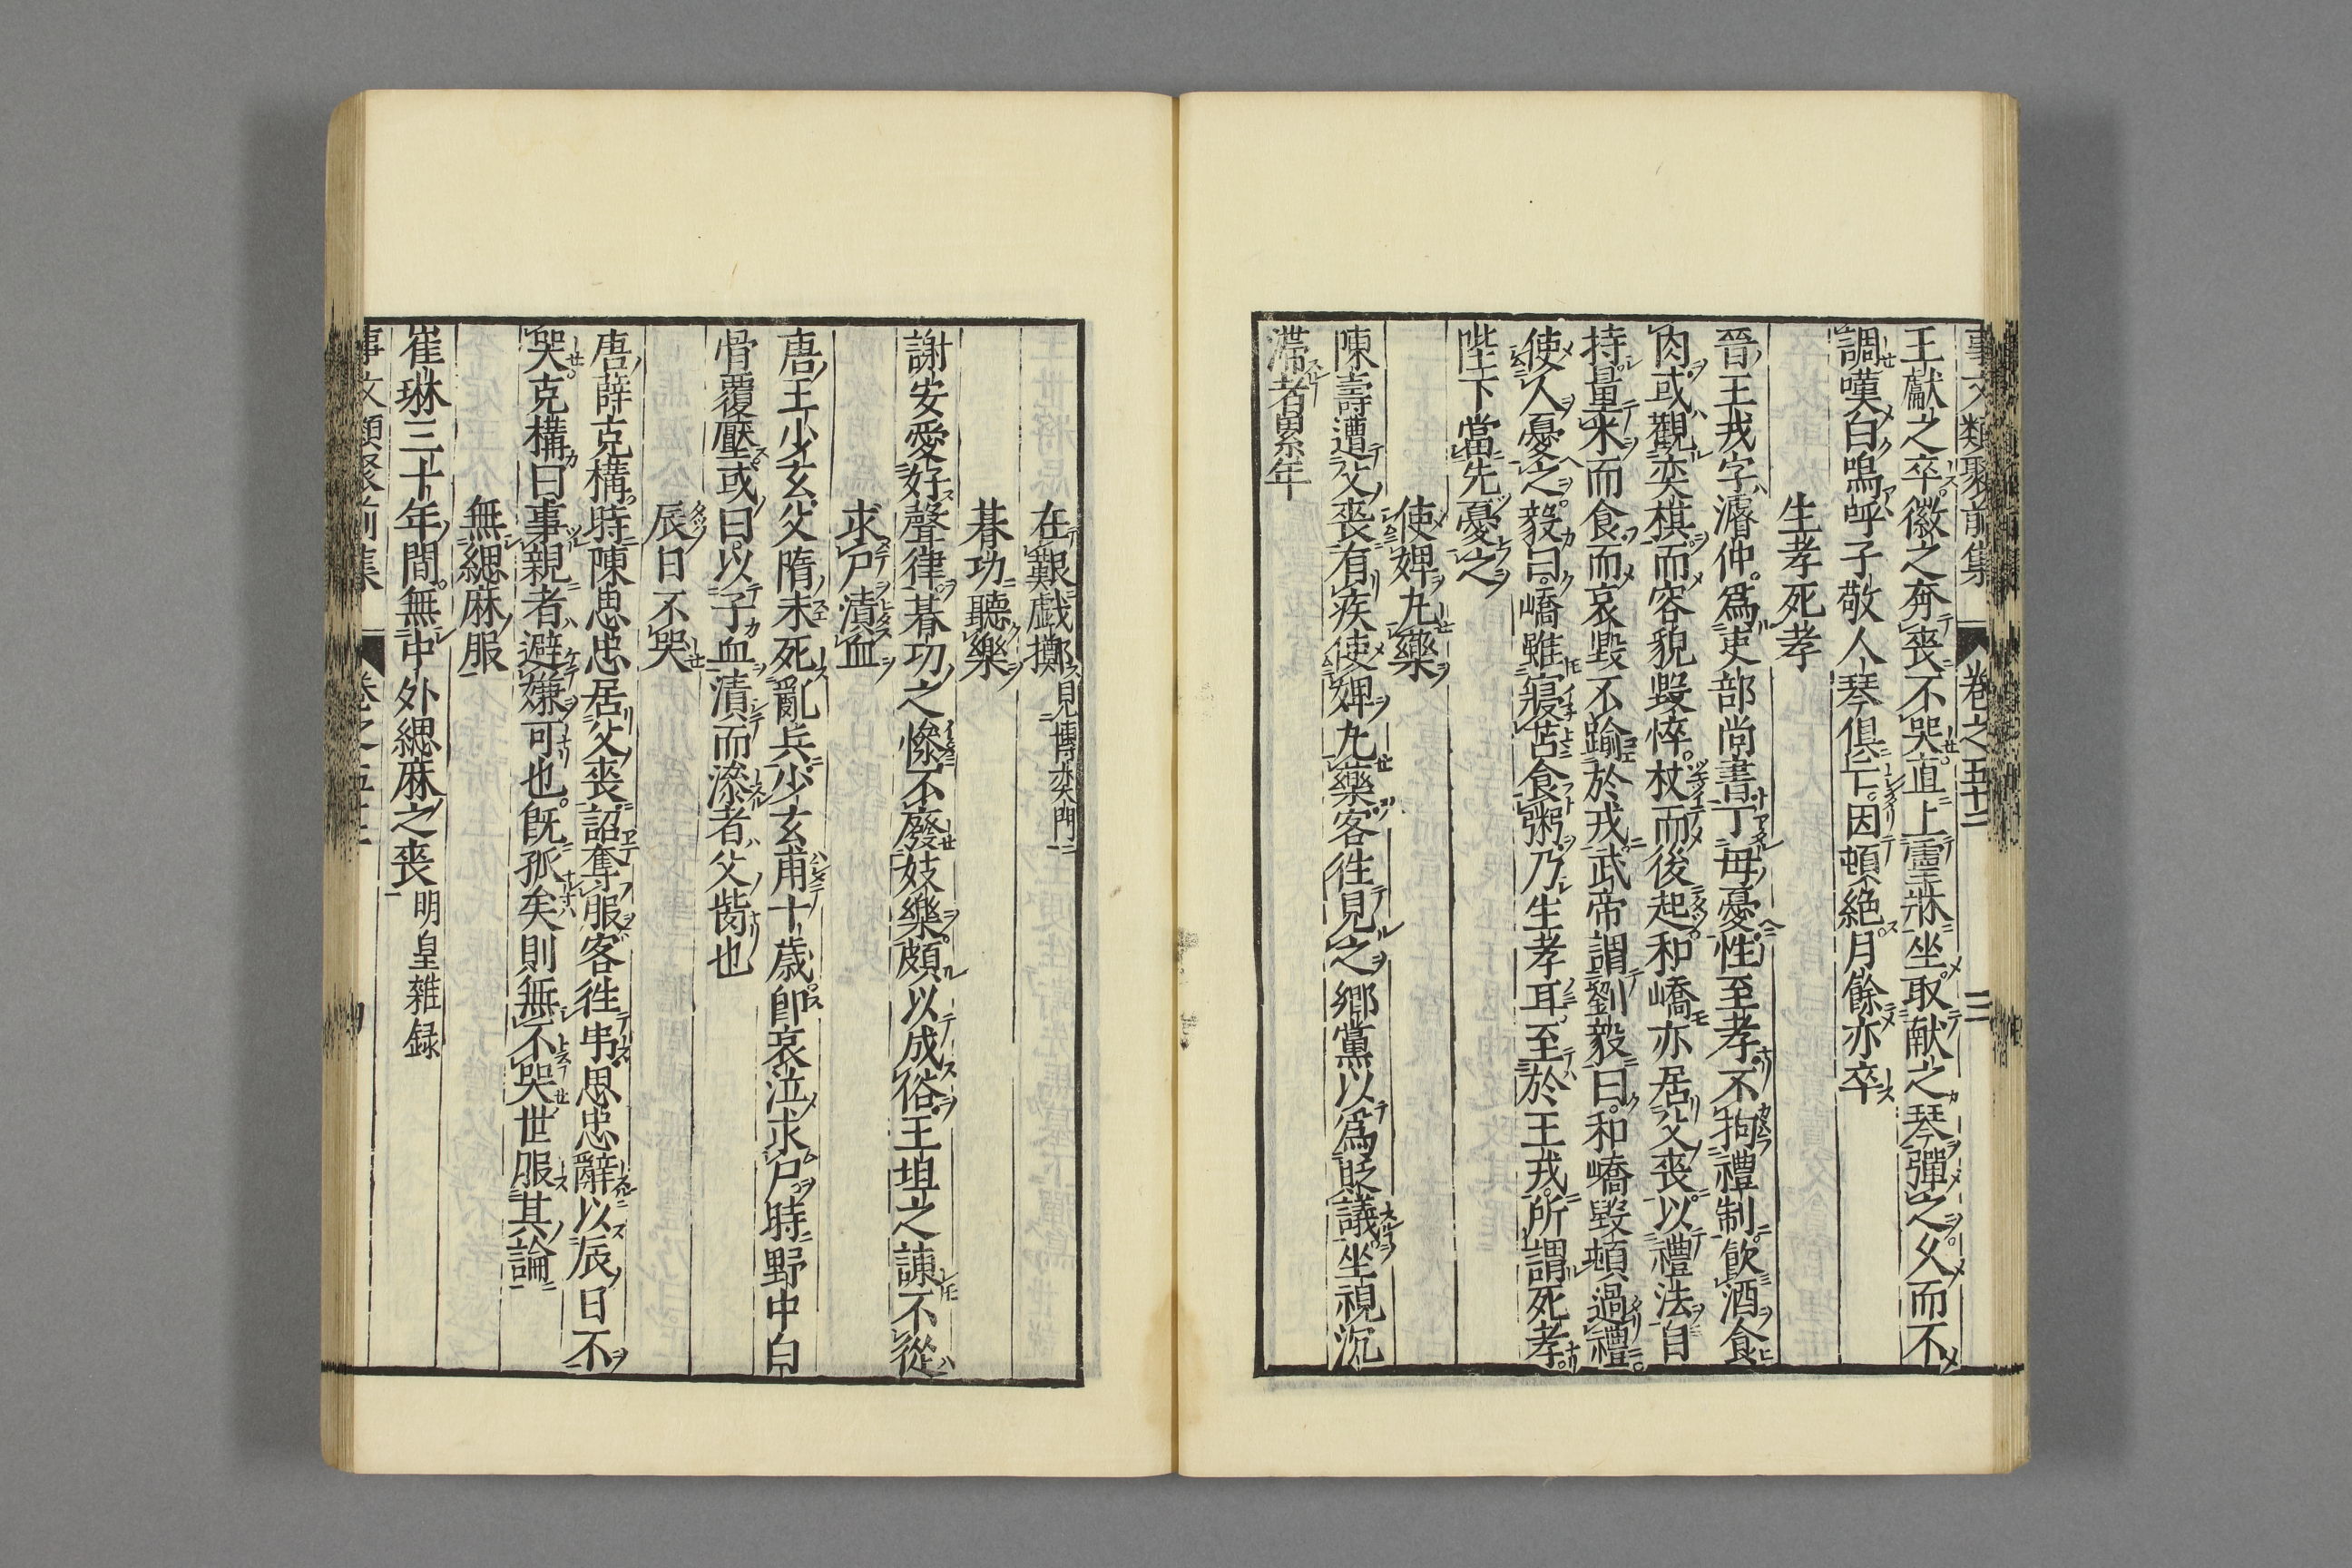 事文類聚前集 卷之五十二 三
王獻之卒徽之奔喪不哭直上靈牀坐取献之琴彈之久而不
調嘆白嗚呼子敬人琴俱亡因頓絶月餘亦卒
生孝死孝
晉王戎字濬仲爲吏部尚書丁母憂性至孝不拘禮制飲酒食
肉或觀奕棋而容貌毀悴杖而後起和嶠亦居父喪以禮法自
持量米而食而哀毀不踰於戎武帝謂劉毅曰和嶠毀頓過禮
使人憂之毅曰嶠雖寢苫食粥乃生孝耳至於王戎所謂死孝
陛下當先憂之
使婢丸藥
陳壽遭父喪有疾使婢丸藥客徃見之鄉黨以爲貶議坐視沉
滯者累年
在艱戯擲見博奕門
朞功聽樂
謝安愛好聲律朞功之慘不廢妓樂頗以成俗王坦之諌不從
求尸漬血
唐王少玄父隋末死亂兵少玄甫十歳卽哀泣求尸時野中白
骨覆壓或曰以子血漬而滲者父胔也
辰日不哭
唐薛克構時陳思忠居父喪詔奪服客徃弔思忠辭以辰日不
哭克構曰事親者避嫌可也旣孤矣則無不哭世服其論
無緦麻服
崔琳三十年間無中外緦麻之喪明皇雜録
事文類聚前集 卷之五十二